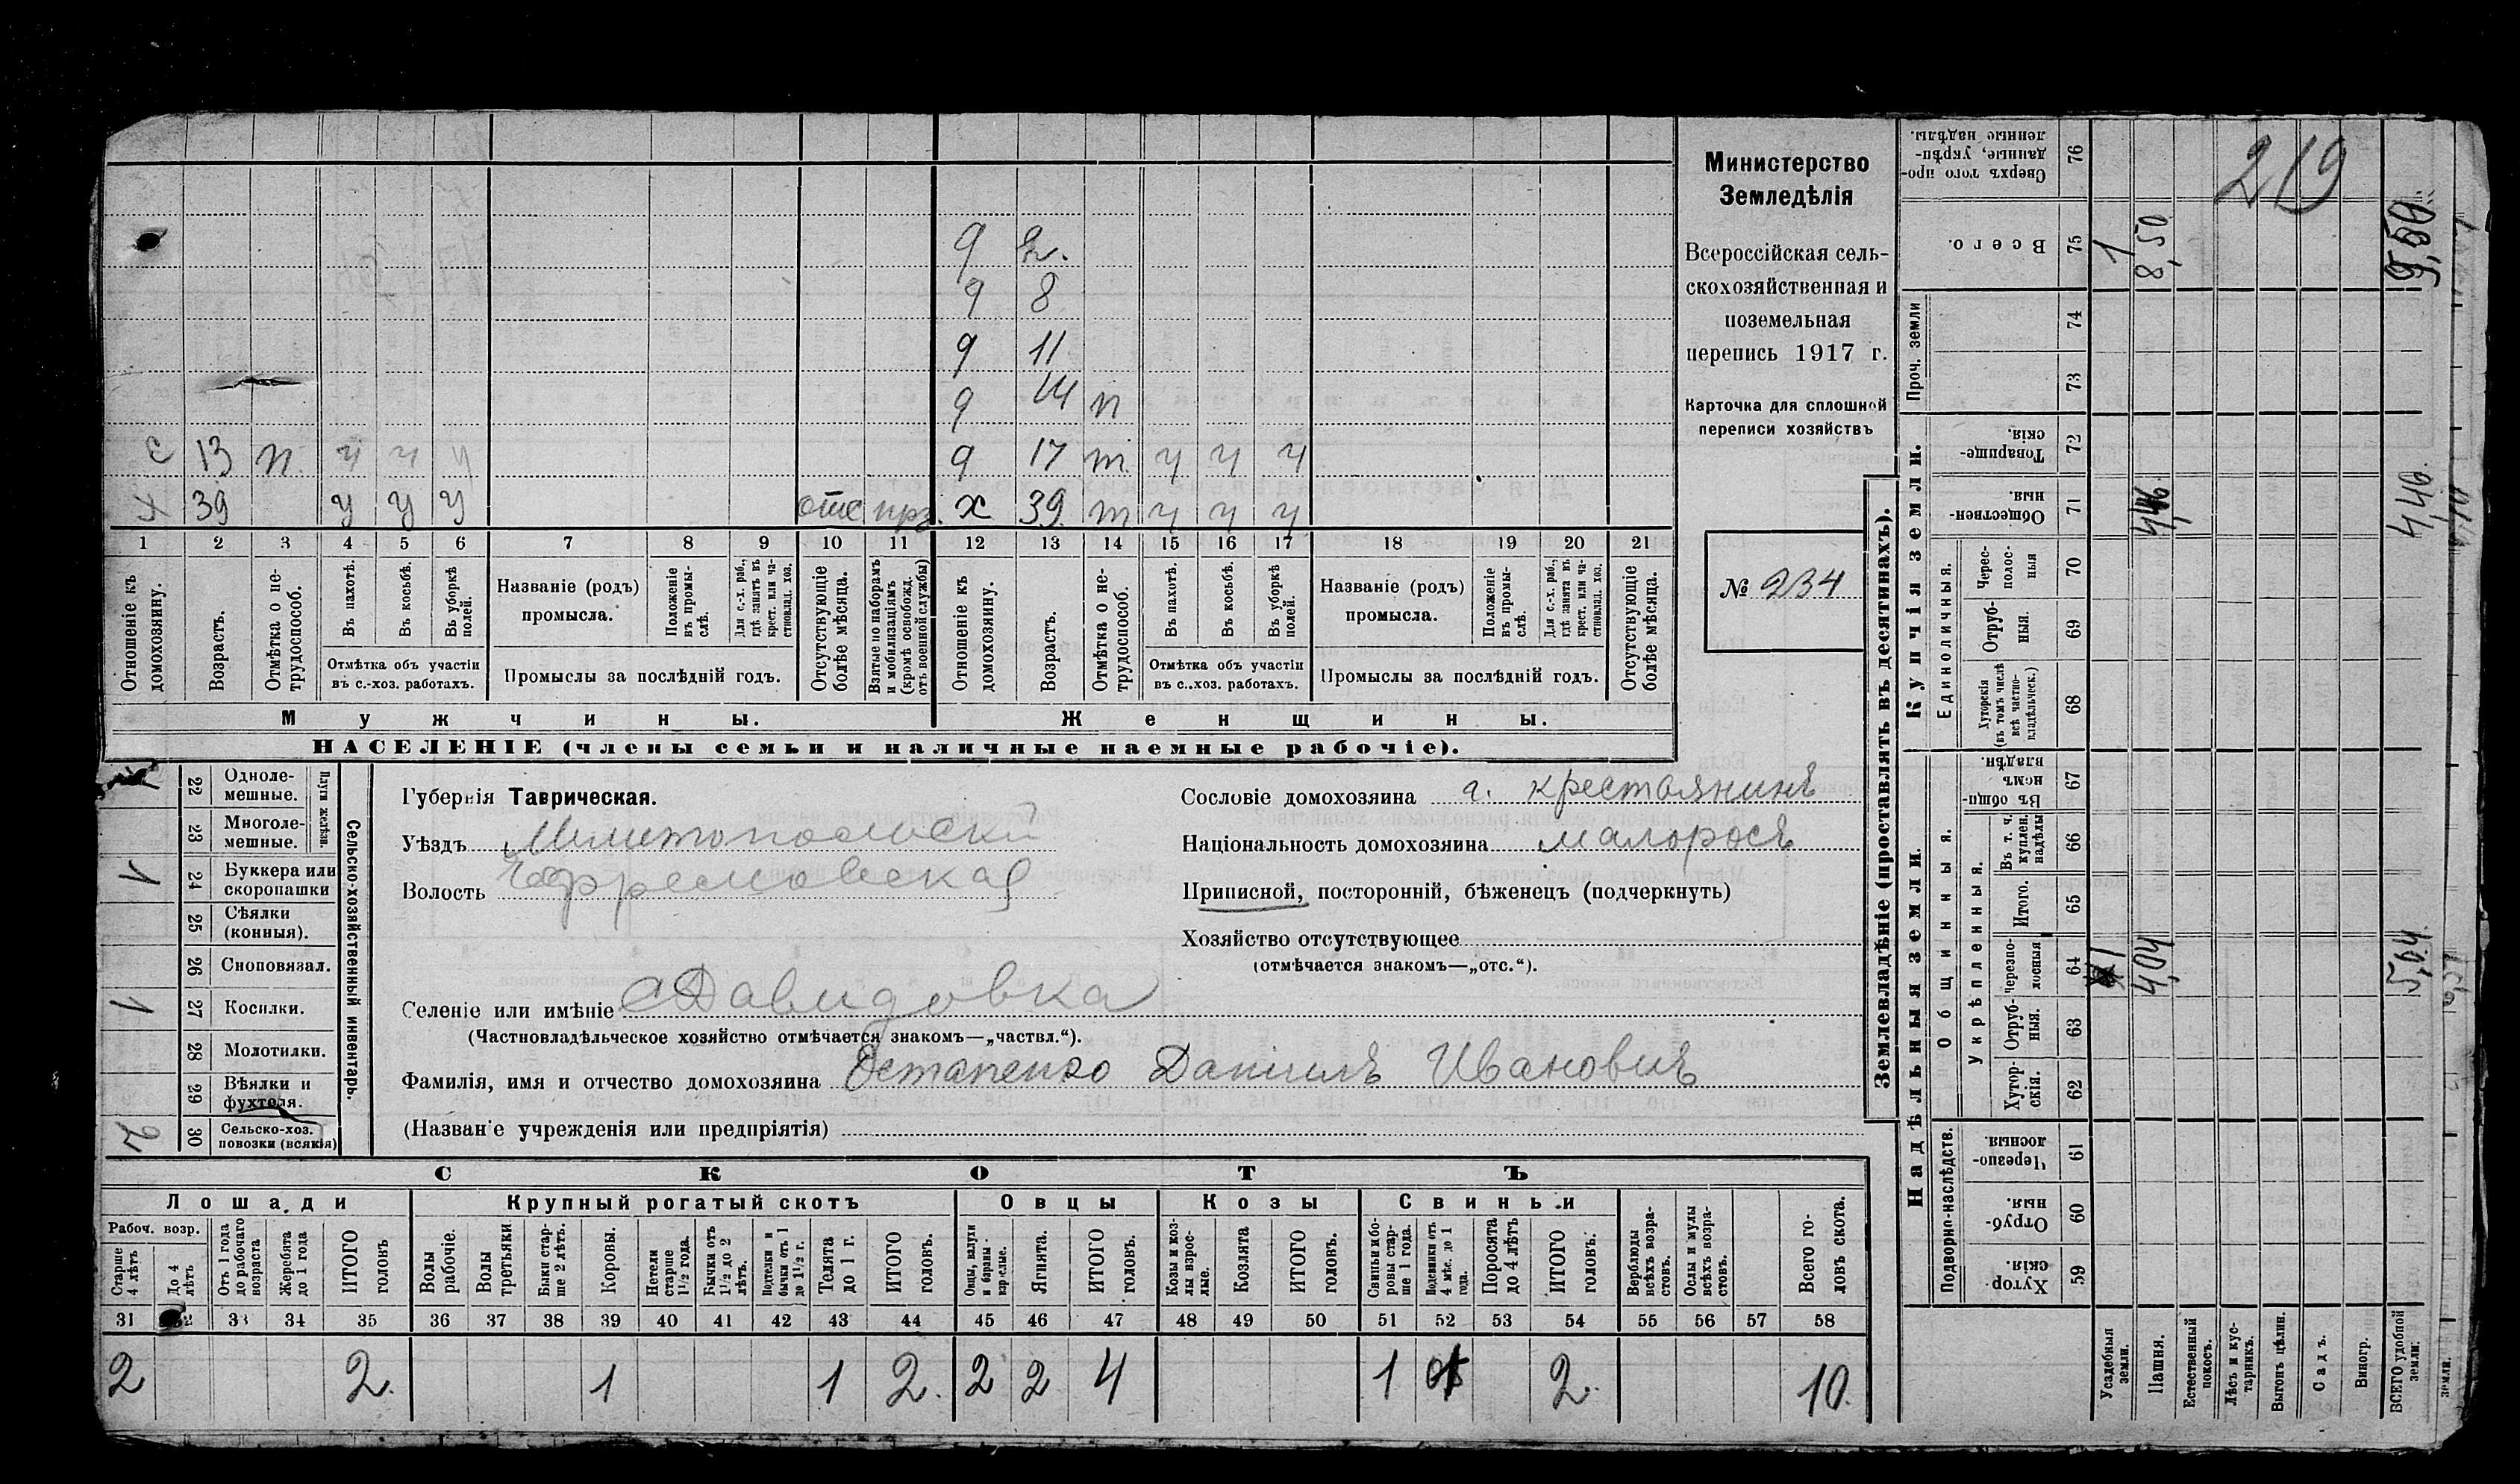 219
Министерство
Земледѣлія
Всероссійская сель-
скохозяйственная и
поземельная
перепись 1917 г.
Карточка для сплошной
переписи хозяйствъ
№ 234
9 2.
9 8
9 11
9 14 п
с 13 п ч ч ч 9 17 т ч ч ч
х 39 у у у отс х 39 т ч ч ч
1 2 3 4 5 6 7 8 9 10 11 12 13 14 15 16 17 18 19 20 21
Отношеніе къ домохозяину.
Возрастъ.
Отмѣтка о не-трудоспособ.
Въ пахотѣ.
Въ косьбѣ.
Въ уборкѣ полей.
Отмѣтка объ участіи
въ с.-хоз. работахъ.
Названіе (родъ)
промысла.
Положеніе въ промы-слѣ.
Для с.-х. раб., гдѣ занятъ въ крест. или ча-стновлад. хоз.
Промыслы за послѣдній годъ.
Отсутствующіе болѣе мѣсяца.
Взятые по наборамъ и мобилизаціямъ (кромѣ освобожд. отъ военной службы)
Отношеніе къ домохозяину.
Возрастъ.
Отмѣтка о не-трудоспособ.
Въ пахотѣ.
Въ косьбѣ.
Въ уборкѣ полей.
Отмѣтка объ участіи
въ с..хоз. работахъ.
Названіе (родъ)
промысла.
Положеніе въ промы-слѣ.
Для с.-х. раб., гдѣ занятъ въ крест. или ча-стновлад. хоз.
Промыслы за послѣдній годъ.
Отсутствующіе болѣе мѣсяца.
Мужчины. Женщины.
НАСЕЛЕНІЕ (члены семьи и наличные наемные рабочіе).
Сельско-хозяйственный инвентарь.
Плуги желѣзн.
22 Одноле-мешные.
23 Многоле-мешные.
1 24 Буккера или скоропашки
25 Сѣялки (конныя).
26 Сноповязал.
1 27 Косилки.
28 Молотилки.
29 Вѣялки и фухтеля.
2 30 Сельско-хоз. повозки (всякія)
Губернія Таврическая.
Уѣздъ Мелитопольскій
Волость Ефремовская
Селеніе или имѣніе Давидовка
(Частновладѣльческое хозяйство отмѣчается знакомъ—„частвл.“).
Фамилія, имя и отчество домохозяина Остапенко Даніилъ Ивановичъ
(Названіе учрежденія или предпріятія)
Сословіе домохозяина крестьянинъ
Національность домохозяина малороссъ
Приписной, посторонній, бѣженецъ (подчеркнуть)
Хозяйство отсутствующее
(отмѣчается знакомъ—„отс.“).
СКОТЪ
Лошади Крупный рогатый скотъ Овцы Козы Свиньи
Рабоч. возр.
Старше 4 лѣтъ
До 4 лѣтъ
Отъ 1 года до рабочаго возраста
Жеребята до 1 года
ИТОГО головъ
Волы рабочіе.
Волы третьяки
Быки стар-ше 2 лѣтъ.
Коровы.
Нетели старше 1½ года.
Бычки отъ 1½ до 2 лѣтъ.
Телята до 1 г.
ИТОГО головъ.
Ягнята.
ИТОГО головъ.
Козы и коз-лы взрос-лые.
Козлята
ИТОГО головъ.
Свиньи и бо-ровы стар-ше 1 года.
Поросята до 4 лѣтъ
ИТОГО головъ.
Верблюды всѣхъ возра-стовъ.
Ослы и мулы всѣхъ возра-стовъ.
Всего го-ловъ скота.
31 33 34 35 36 37 38 39 40 41 42 43 44 45 46 47 48 49 50 51 52 53 54 55 56 57 58
2 2. 1 1 2. 2 2 4 1 2. 10.
Землевладѣніе (проставлять въ десятинахъ).
Надѣльныя земли. Купчія земли.
Подворно-наслѣдств.
Хутор-скія. 59
Отруб-ныя. 60
Черезпо-лосныя. 61
Общинныя.
Укрѣпленныя.
Хутор-скія. 62
Отруб-ныя. 63
Черезпо-лосныя 64
Итого. 65
Въ т. ч. куплен. надѣлы 66
Въ общин-номъ владѣн. 67
Единоличныя.
Хуторскія (въ томъ числѣ всѣ частно-владѣльческ.) 68
Отруб-ныя. 69
Черес-полос-ныя 70
Обществен-ныя. 71
Товарище-скія. 72
Проч. земли
73
74
Всего. 75
Сверхъ того про-данные, укрѣп-ленные надѣлы. 76
Усадебныя земли. 1 1
Пашня. 4,04 4,46 8,50
Естественный покосъ.
Лѣсъ и кус-тарникъ.
Выгонъ цѣлин.
Садъ.
Виногр.
ВСЕГО удобной земли: 5,04 4,46. 9,50
земли.